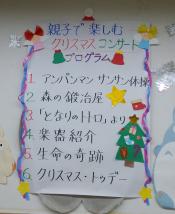 親子で楽しむ
クリスマスコンサート
プログラム
1. アンパンマン サンサン体操
2. 森の鍛冶屋
3. 「となりのトトロ」より
4. 楽器紹介
5. 生命の奇跡
6. クリスマス・トゥデー